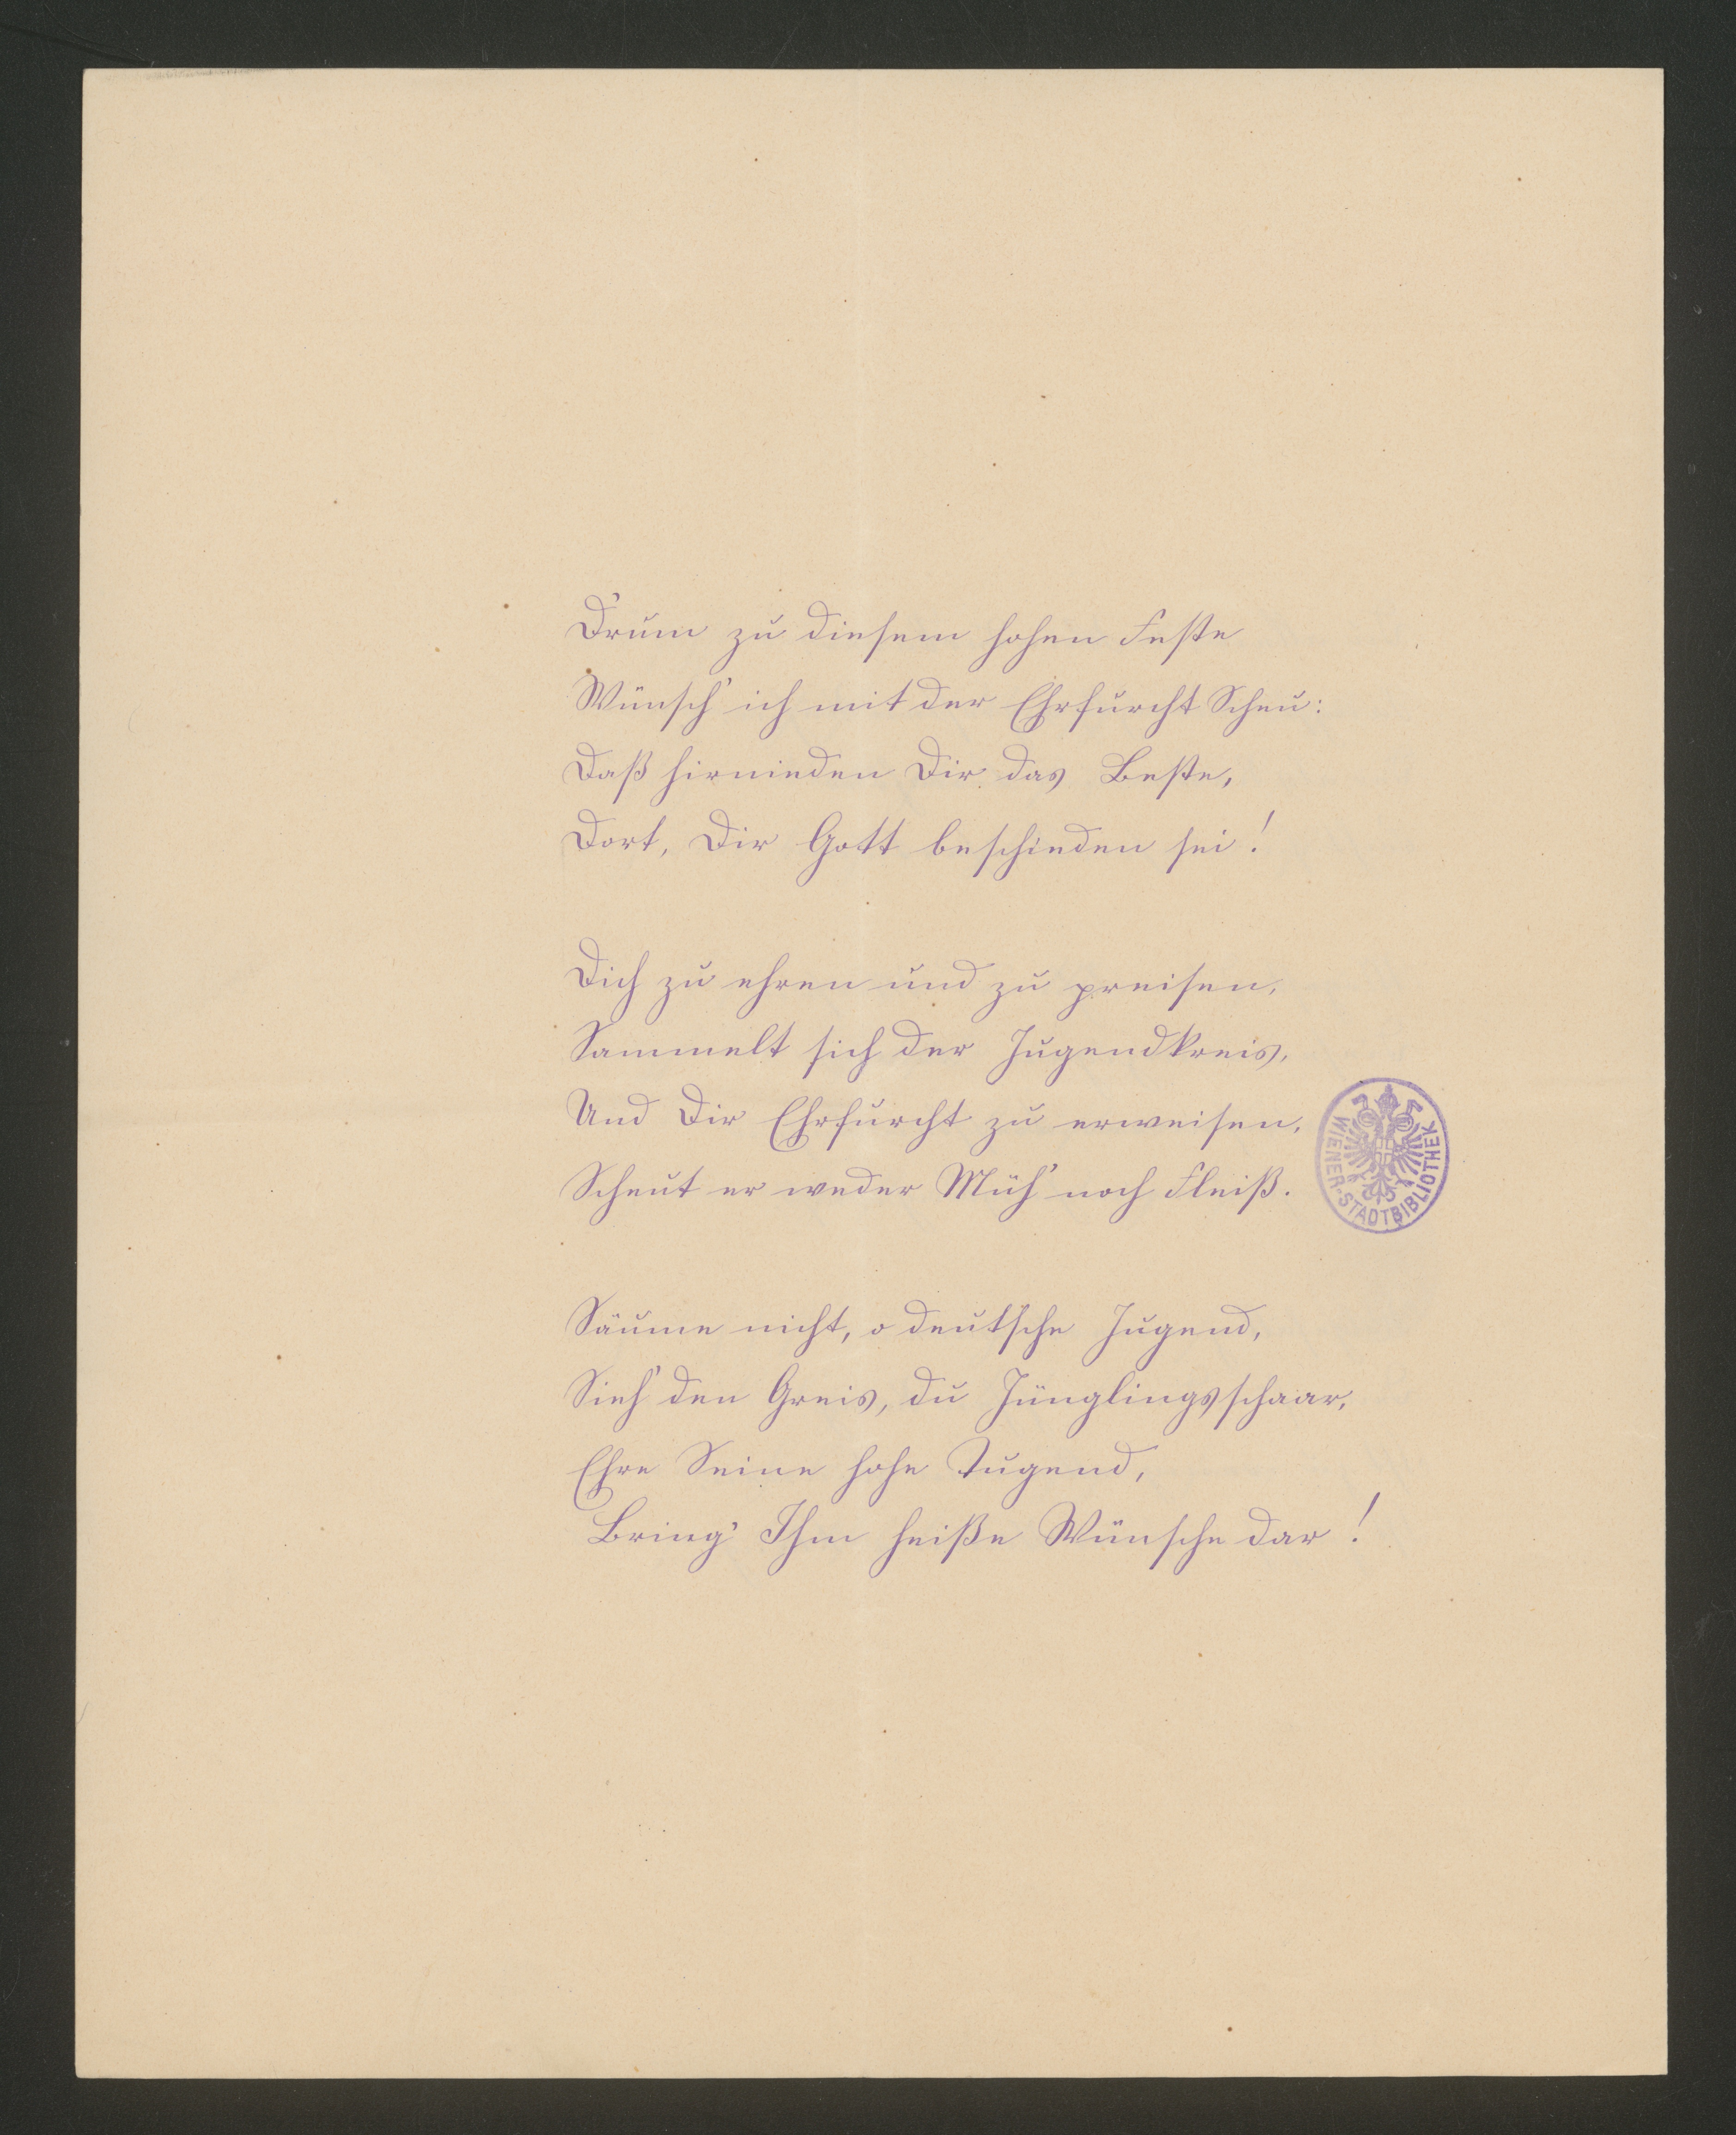 D'rum zu diesem hohen Feste
Wünsch' ich mit der Ehrfurcht Scheu:
Daß hirnieden Dir das Beste,
Dort, Dir Gott beschieden sei!
Dich zu ehren und zu preisen,
Sammelt sich der Jugendkreis,
Und Dir Ehrfurcht zu erweisen,
Scheut er weder Müh' noch Fleiß.
WIENER-STADTBIBLIOTHEK
Säume nicht, o deutsche Jugend,
Sieh' den Greis, du Jünglingsschaar,
Ehre Seine hohe Tugend,
Bring' Ihm heiße Wünsche dar!